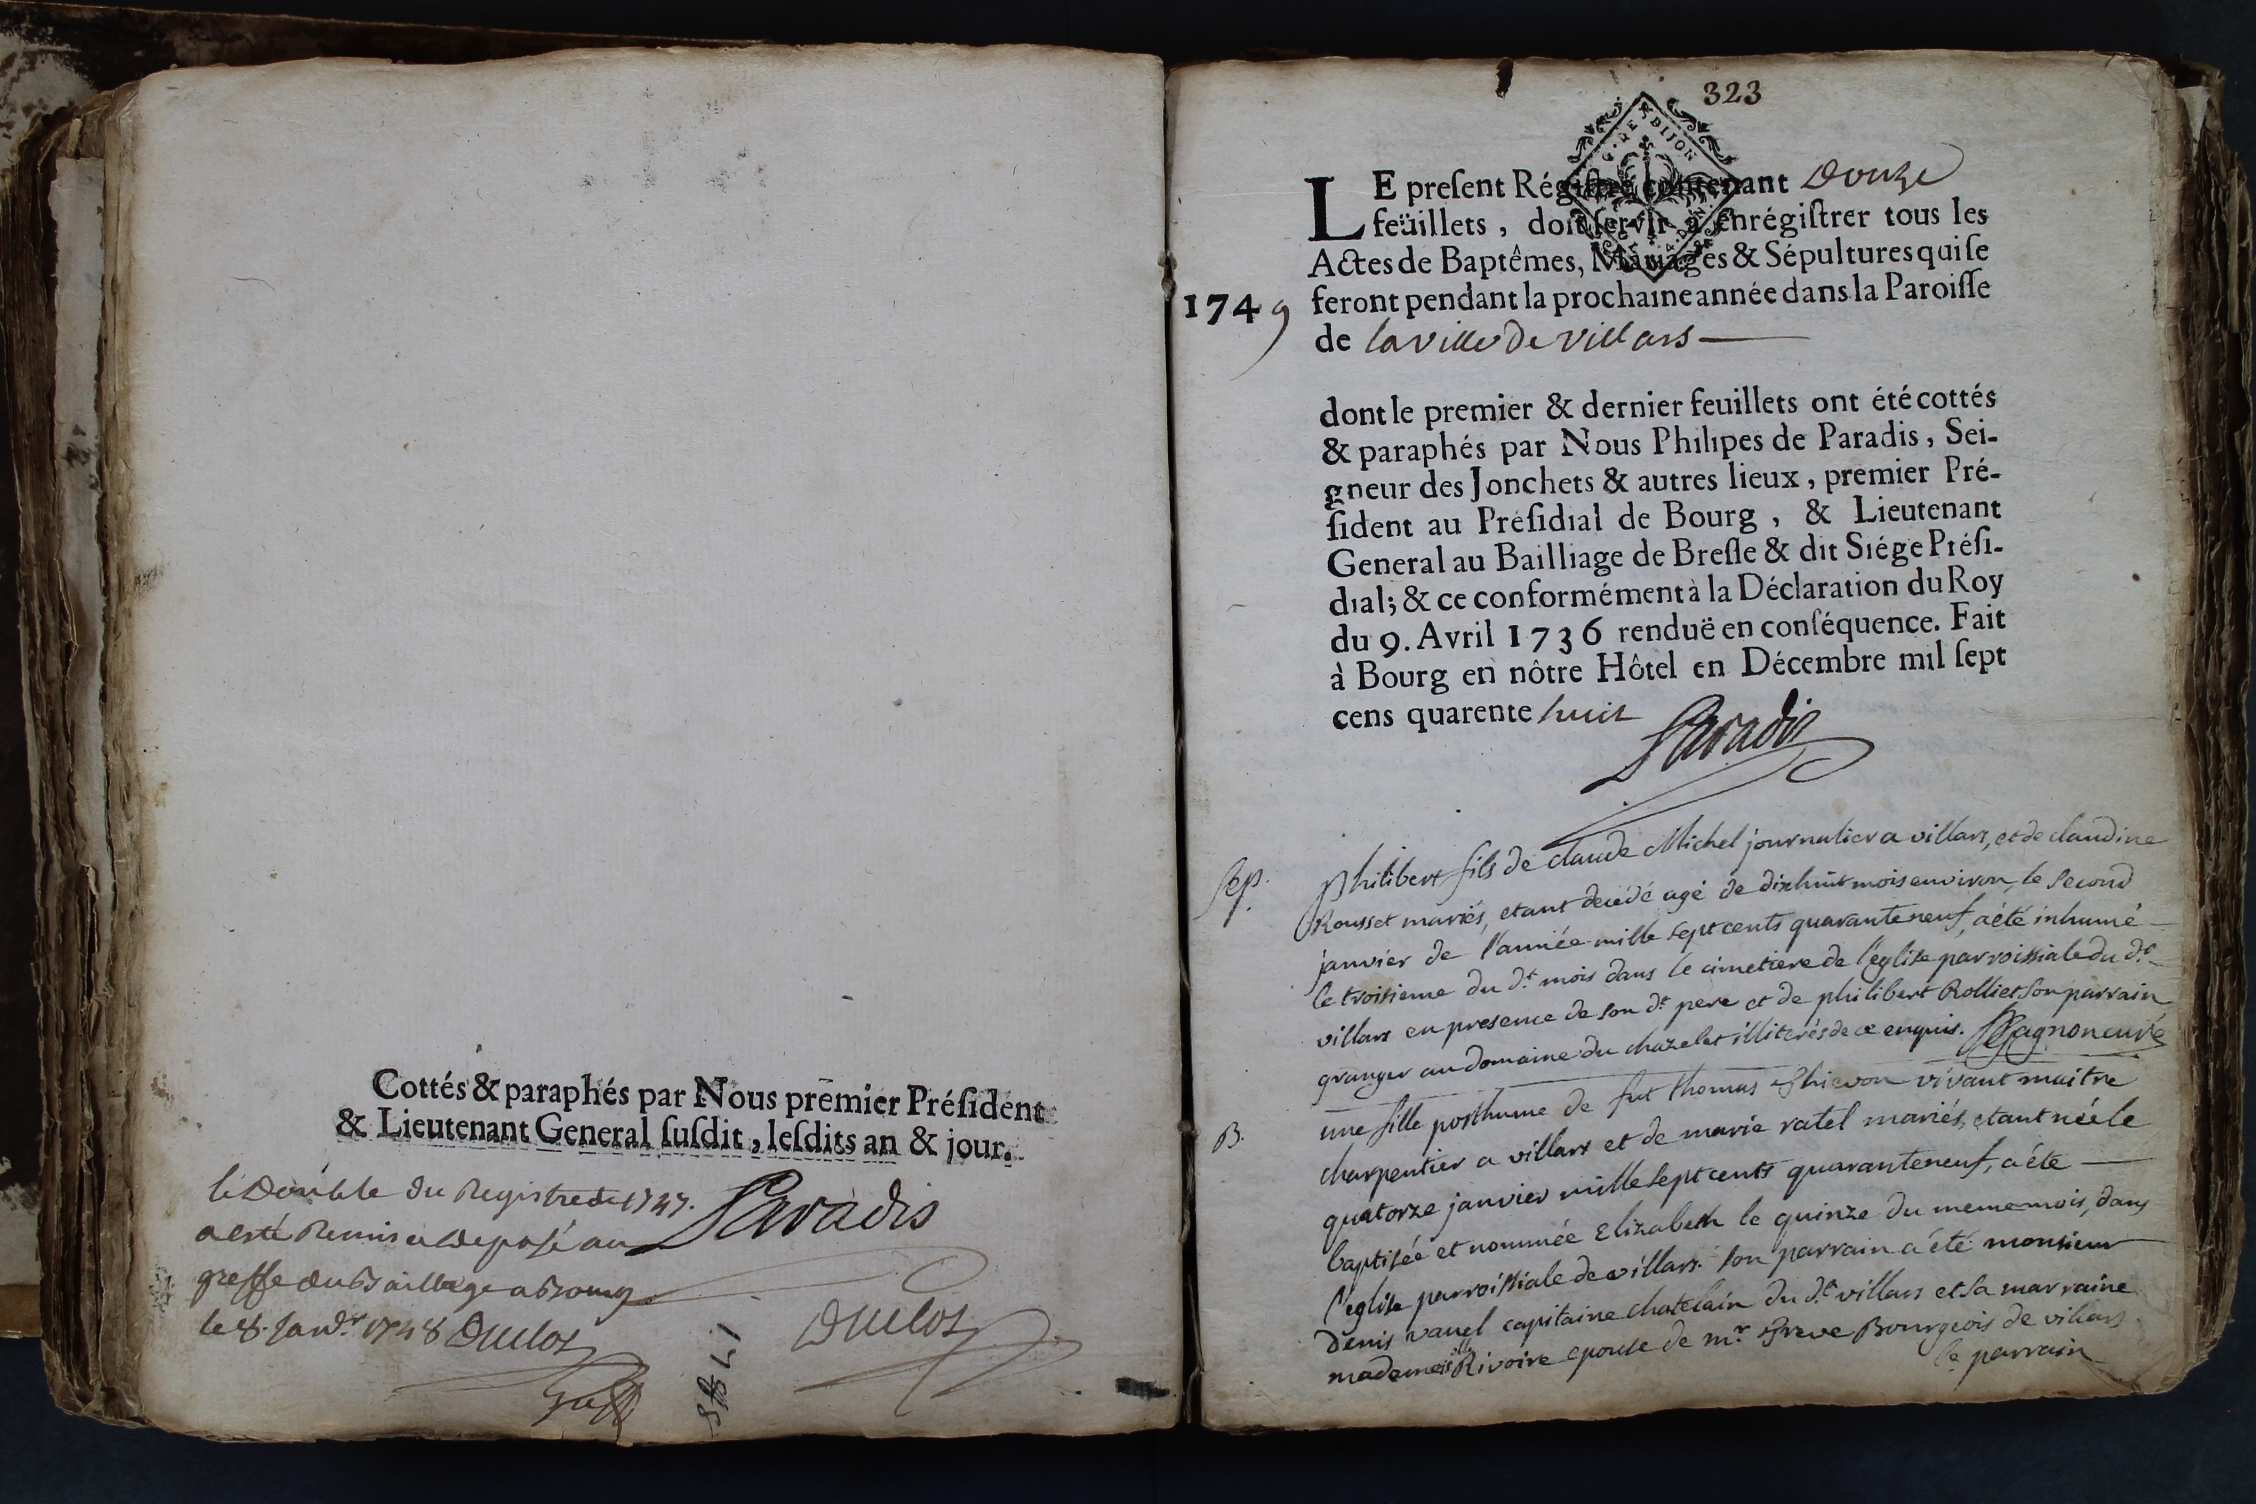 Cottés & paraphés par Nous premier Président
& Lieutenant General susdit, lesdits an & jour.
le Double du Registre de 1747.
a esté Remis et deposé au
greffe du Bailliage a Bourg
le 8. Janv.r 1748 Duclos
Paradis
Duclos
1748
323
G. DE DIJON
LE present Régistre contenant Douze
feüillets, doit servir à enrégistrer tous les
Actes de Baptêmes, Mariages & Sépultures qui se
1749 feront pendant la prochaine année dans la Paroisse
de la ville de villars
dont le premier & dernier feuillets ont été cottés
& paraphés par Nous Philipes de Paradis, Sei-
gneur des Jonchets & autres lieux, premier Pré-
sident au Présidial de Bourg, & Lieutenant
General au Bailliage de Bresse & dit Siége Prési-
dial; & ce conformément à la Déclaration du Roy
du 9. Avril 1736 renduë en conséquence. Fait
à Bourg en nôtre Hôtel en Décembre mil sept
cens quarente huit
Paradis
Sep. philibert fils de claude Michel journalier a villars, et de claudine
Rousset mariés, etant decedé agé de dixhuit mois environ, le second
janvier de l'année mille sept cents quaranteneuf, a été inhumé
le troisieme du d.t mois dans le cimetiere de l'eglise parroissiale du d.t
villars en presence de son d.t pere et de philibert Rolliet son parrain
granger au domaine du chazelet illiterés de ce enquis. Magnon curé
B. une fille posthume de fut thomas vivant maitre
charpentier a villars et de marie ratel mariés, etant née le
quatorze janvier mille sept cents quaranteneuf, a été
baptisée et nommée Elizabeth le quinze du meme mois, dans
l'eglise parroissiale de villars. son parrain a été monsieur
Denis vauel capitaine chatelain du d.t villars et sa marraine
mademoislle Rivoire epouse de m.r Greve Bourgeois de villars
le parrain